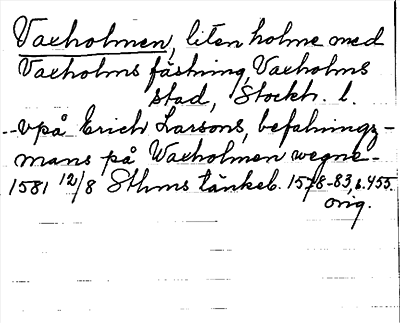 Vaxholmen, liten holme med
Vaxholms fästning, Vaxholms
stad, Stockh. l.
--vpå Erich Larsons, befalningz-
mans på Waxholmen wegne-
1581 12/8 Sthms tänkeb. 1578-83, s. 455.
orig.